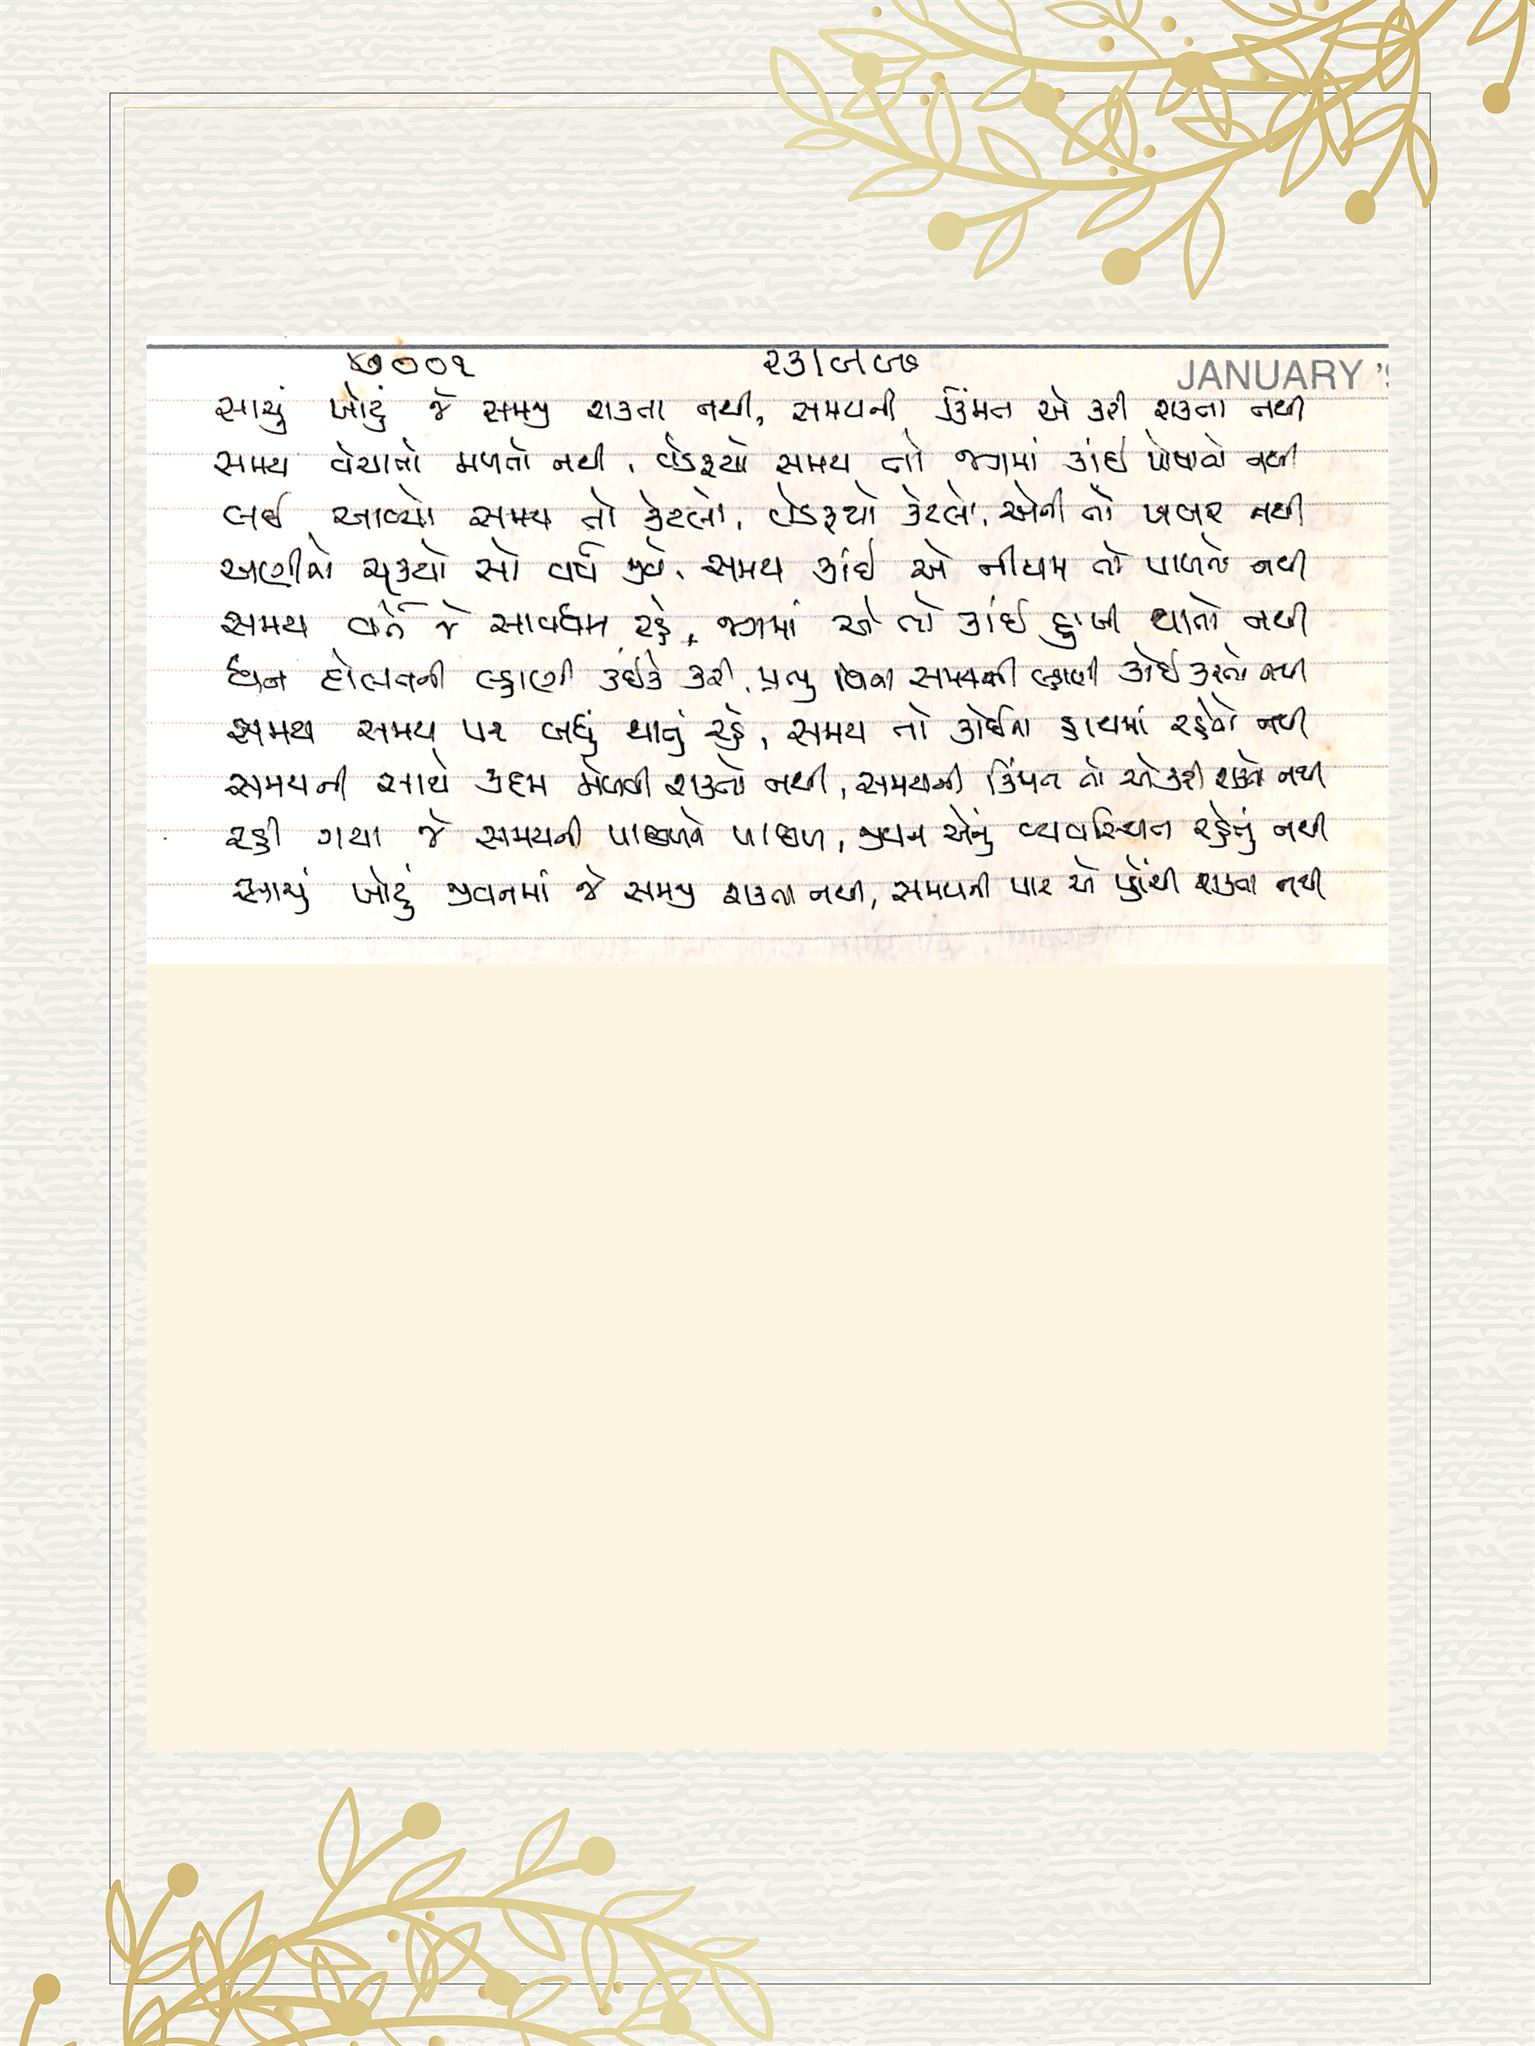 ૪૭૦૦૧ ૨૩|૯|૯૭ JANUARY '
સાચું ખોટું જે સમજી શકતા નથી, સમયની કિંમત એ કરી શકતા નથી
સમય વેચાતો મળતો નથી, વેડફયો સમય તો જગમાં કાંઈ પોષાતો નથી
લઈ આવ્યો સમય તો કેટલો, વેડફયો કેટલો, એની તો ખબર નથી
અણીનો ચૂકયો સો વર્ષ જીવે, સમય કાંઈ એ નીયમ તો પાળતો નથી
સમય વર્તે જે સાવધાન રહે, જગમાં એ તો કાંઈ દુઃખી થાતો નથી
ધન દોલતની લ્હાણી કંઈકે કરી, સમયની લ્હાણી કોઈ કરતો નથી
સમય સમય પર બધું થાતું રહે, સમય તો કોઈના હાથમાં રહેતો નથી
સમયની સાથે કદમ મેળવી શકતો નથી, સમયની કિંમત તો એ કરી શકતો નથી
રહી ગયા જે સમયની પાછળને પાછળ, જીવન એનું વ્યવસ્થિત રહેતું નથી
સાચું ખોટું જીવનમાં જે સમજી શકતા નથી, સમયની પાર એ પ્હોંચી શકતા નથી